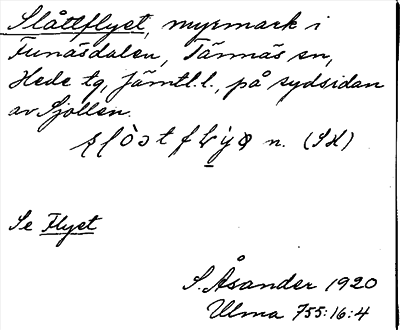 Slåttflyet, myrmark i
Funäsdalen, Tännäs sn,
Hede tg, Jämtl. l., på sydsidan
av Sjöllen.
n. (SH)
Se Flyet
S. Åsander 1920
Ulma 755:16:4